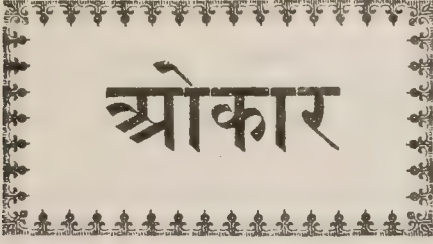 ओकार